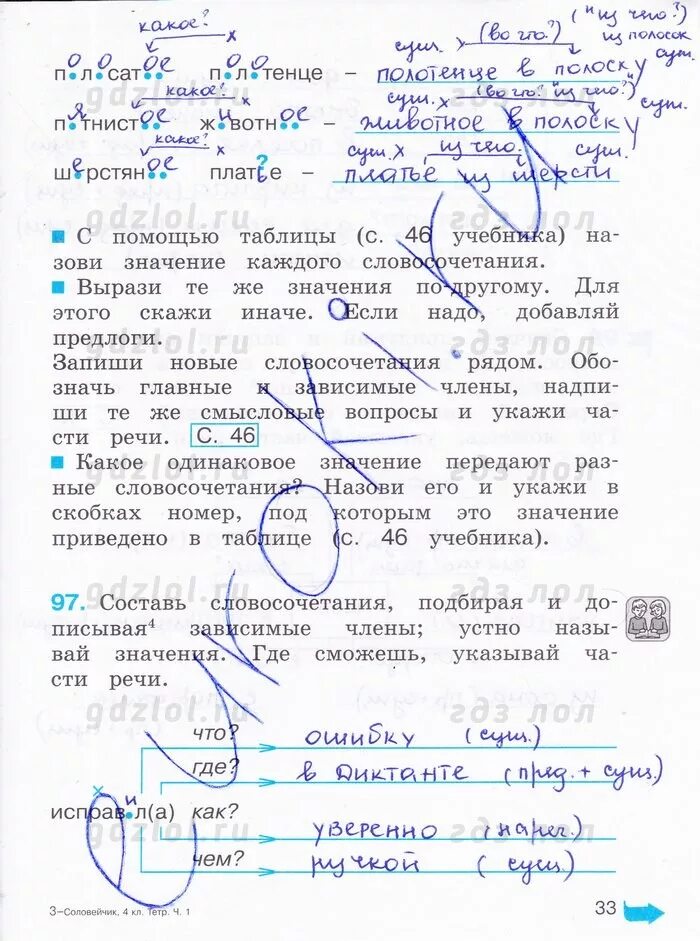 какое? (во что?) ("из чего?)
сущ. х из полосок
сущ.
полосатое полотенце – полотенце в полоску
какое? сущ. х (во что? "из чего?") сущ.
пятнистое животное – животное в полоску
какое? х сущ. х из чего. сущ.
шерстяное платье? – платье из шерсти
gdzlol.ru гдз лол
С помощью таблицы (с. 46 учебника) на-
зови значение каждого словосочетания.
Вырази те же значения по-другому. Для
этого скажи иначе. Если надо, добавляй
предлоги.
Запиши новые словосочетания рядом. Обо-
значь главные и зависимые члены, надпи-
ши те же смысловые вопросы и укажи ча-
сти речи. С. 46
Какое одинаковое значение передают раз-
ные словосочетания? Назови его и укажи в
скобках номер, под которым это значение
приведено в таблице (с. 46 учебника).
97. Составь словосочетания, подбирая и до-
писывая⁴ зависимые члены; устно назы-
вай значения. Где сможешь, указывай ча-
сти речи.
что? ошибку (сущ.)
где? в диктанте (пред. + сущ.)
х
исправил(а) как? уверенно (нареч.)
чем? ручкой (сущ.)
3–Соловейчик, 4 кл. Тетр. Ч. 1
33